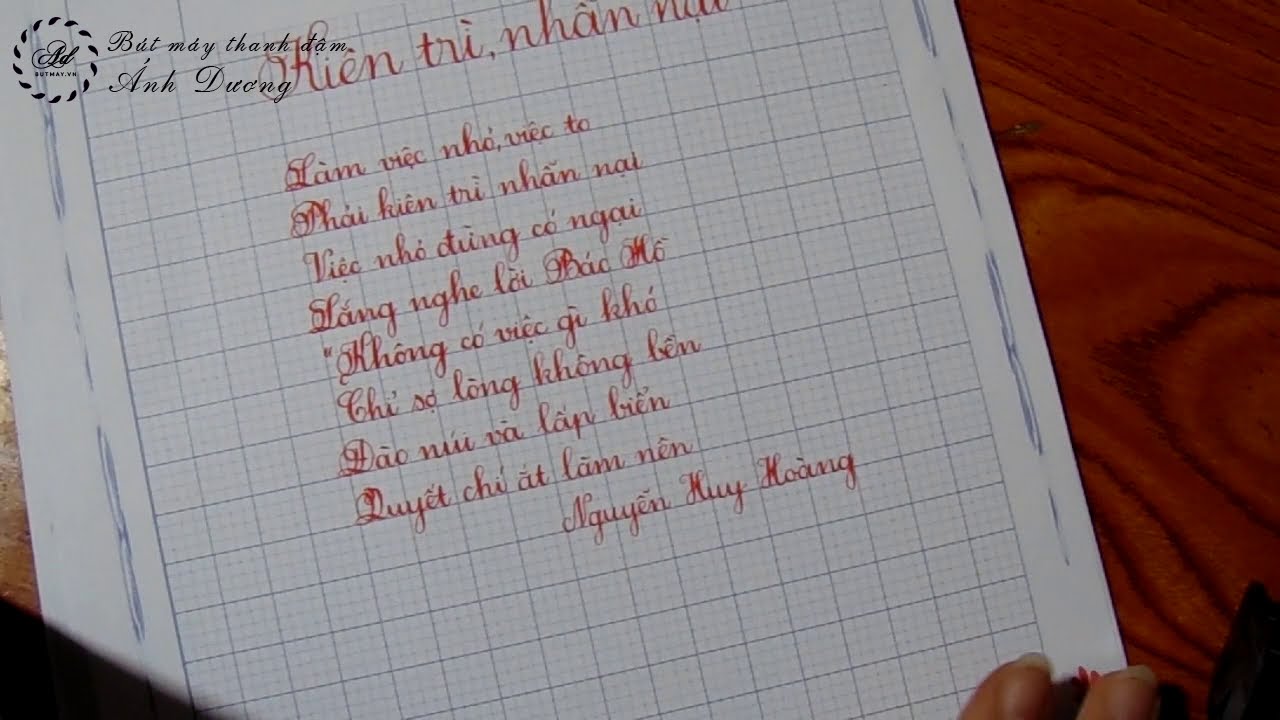 Bút máy thanh đậm
Ánh Dương
Ad
BUTMAY.VN
Kiên trì, nhẫn nại
Làm việc nhỏ, việc to
Phải kiên trì nhẫn nại
Việc nhỏ đừng có ngại
Lắng nghe lời Bác Hồ
"Không có việc gì khó
Chỉ sợ lòng không bền
Đào núi và lấp biển
Quyết chí ắt làm nên
Nguyễn Huy Hoàng